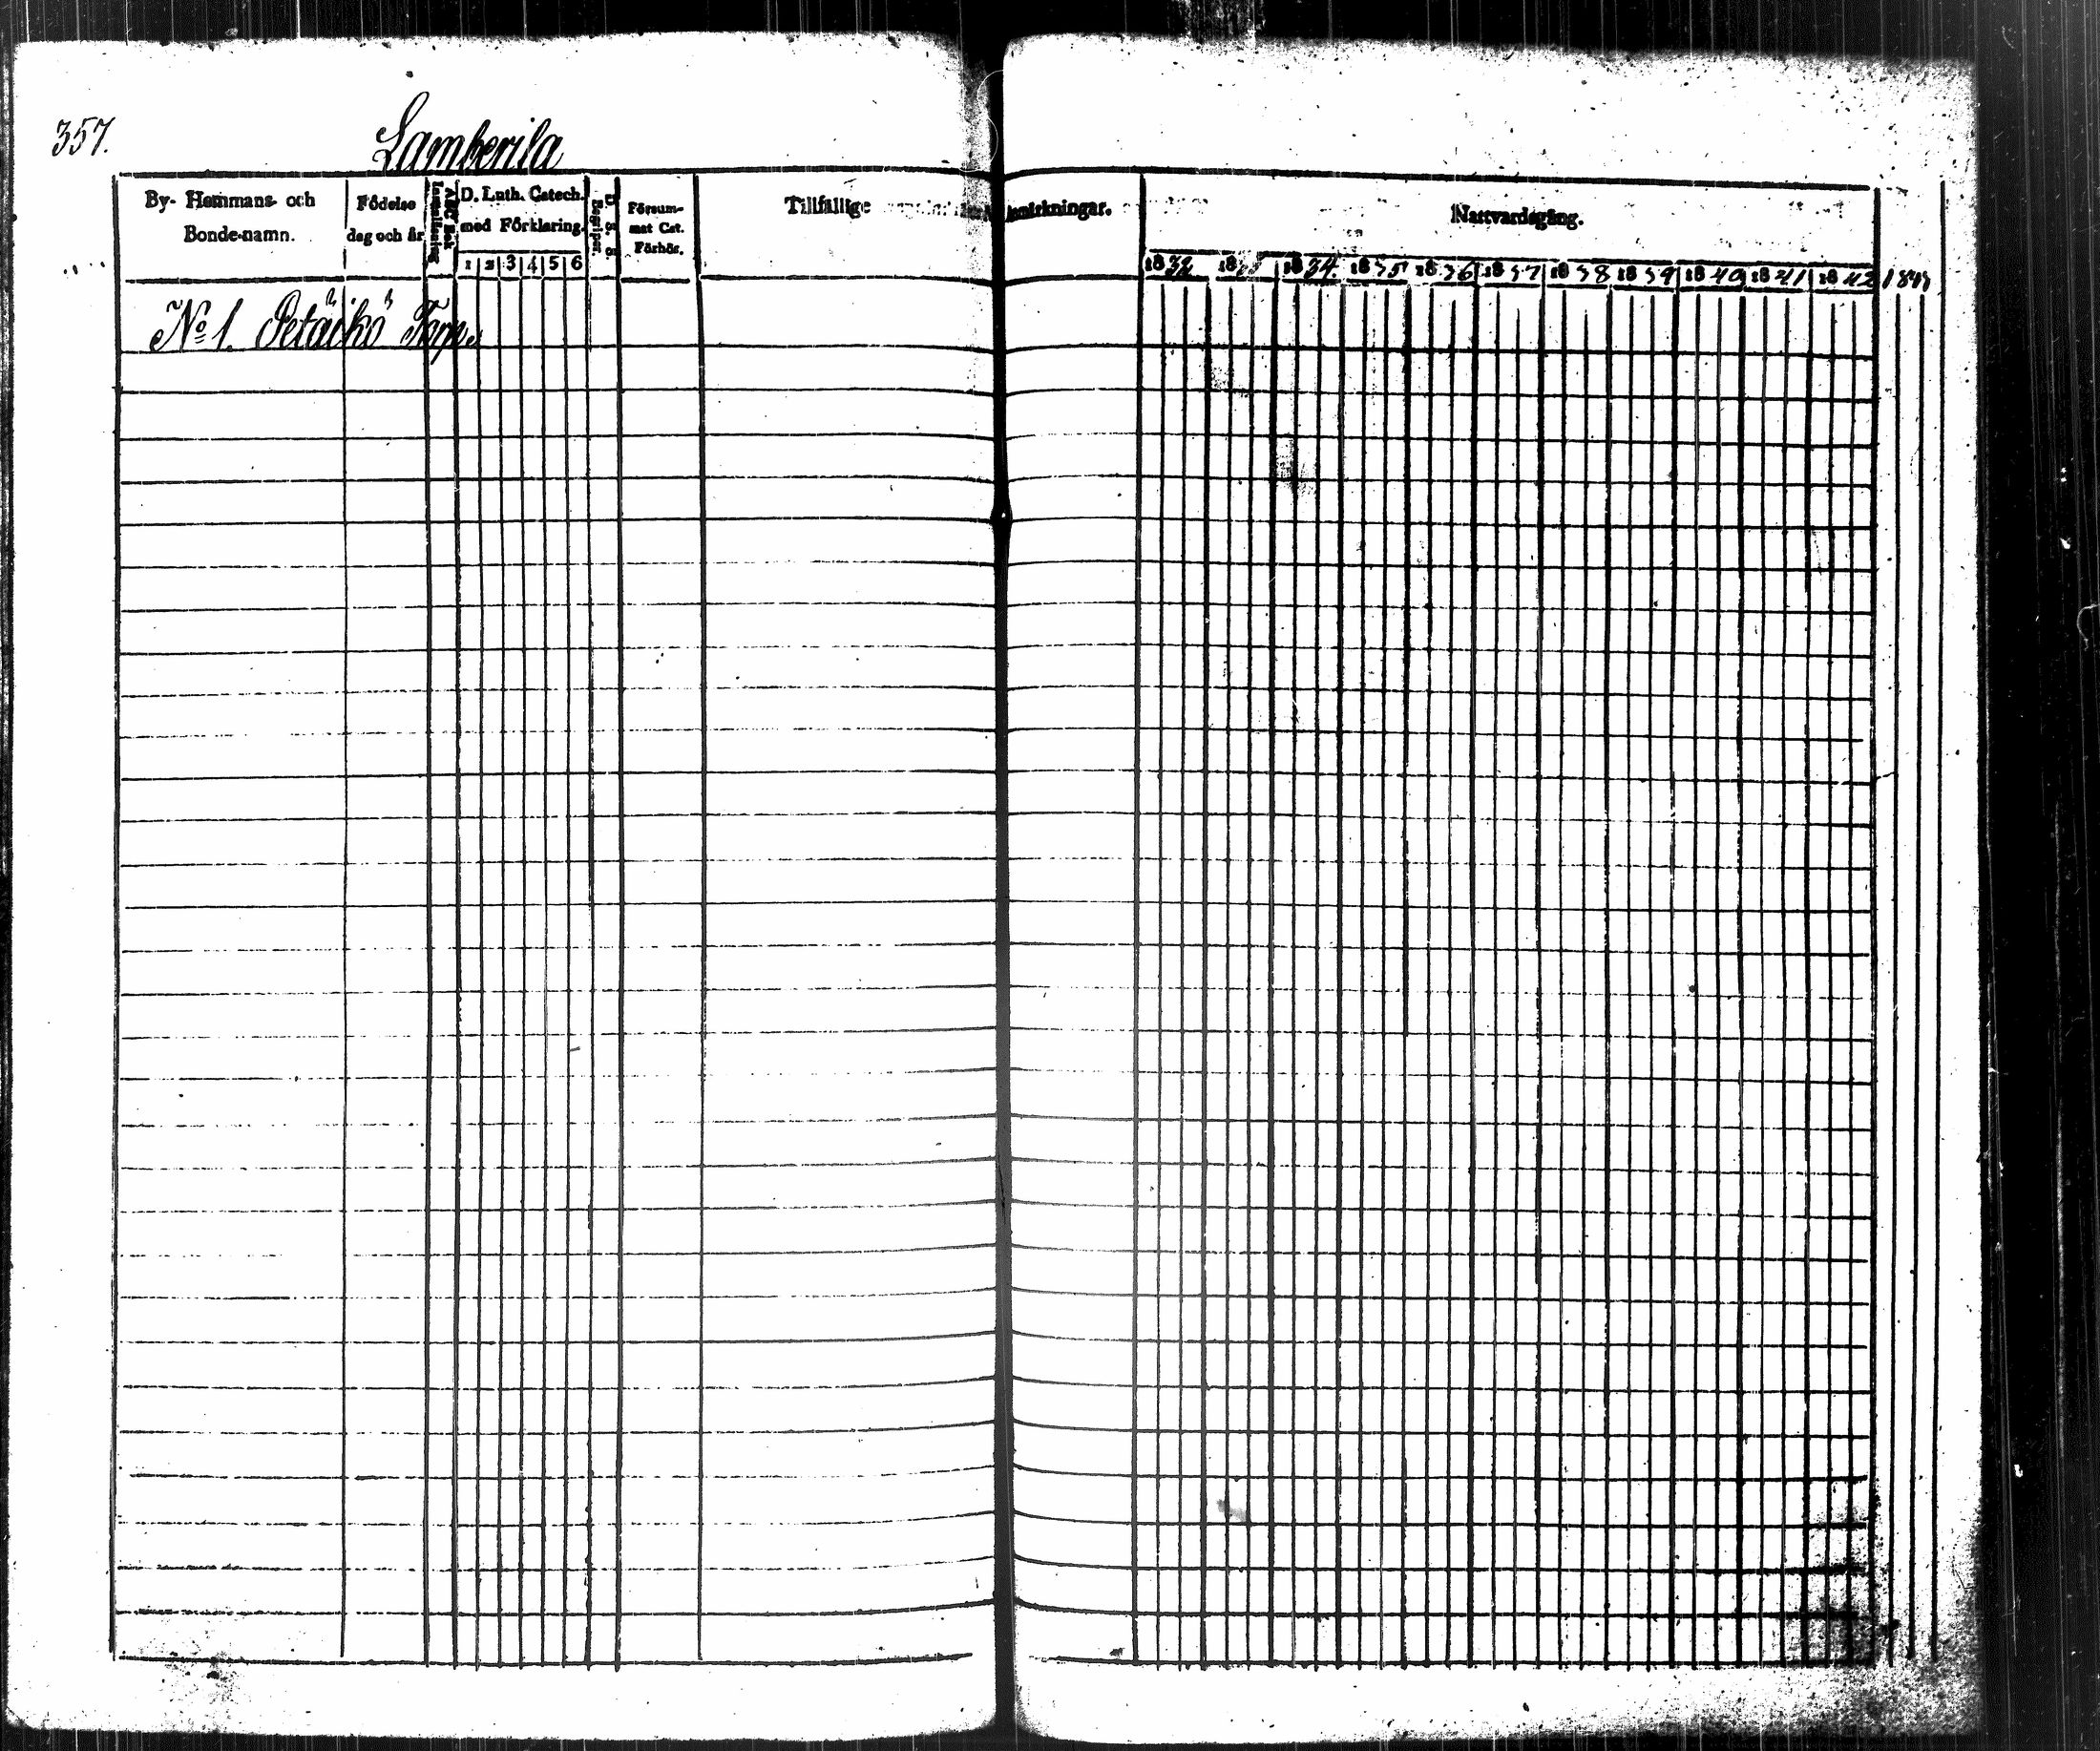 357.
Lamberila
By- Hemmans- och
Bonde-namn.
Födelse
dag och år
A B C Bok
Innanläsning
D. Luth. Catech.
med Förklaring.
1 2 3 4 5 6
Begriper.
Försum-
mat Cat.
Förhör.
Tillfällige Anmärkningar.
Nattvardsgång.
1832 1833 1834. 1835 1836 1837 1838 1839 1840 1841 1842 1843
No 1. Petäikö Torp.